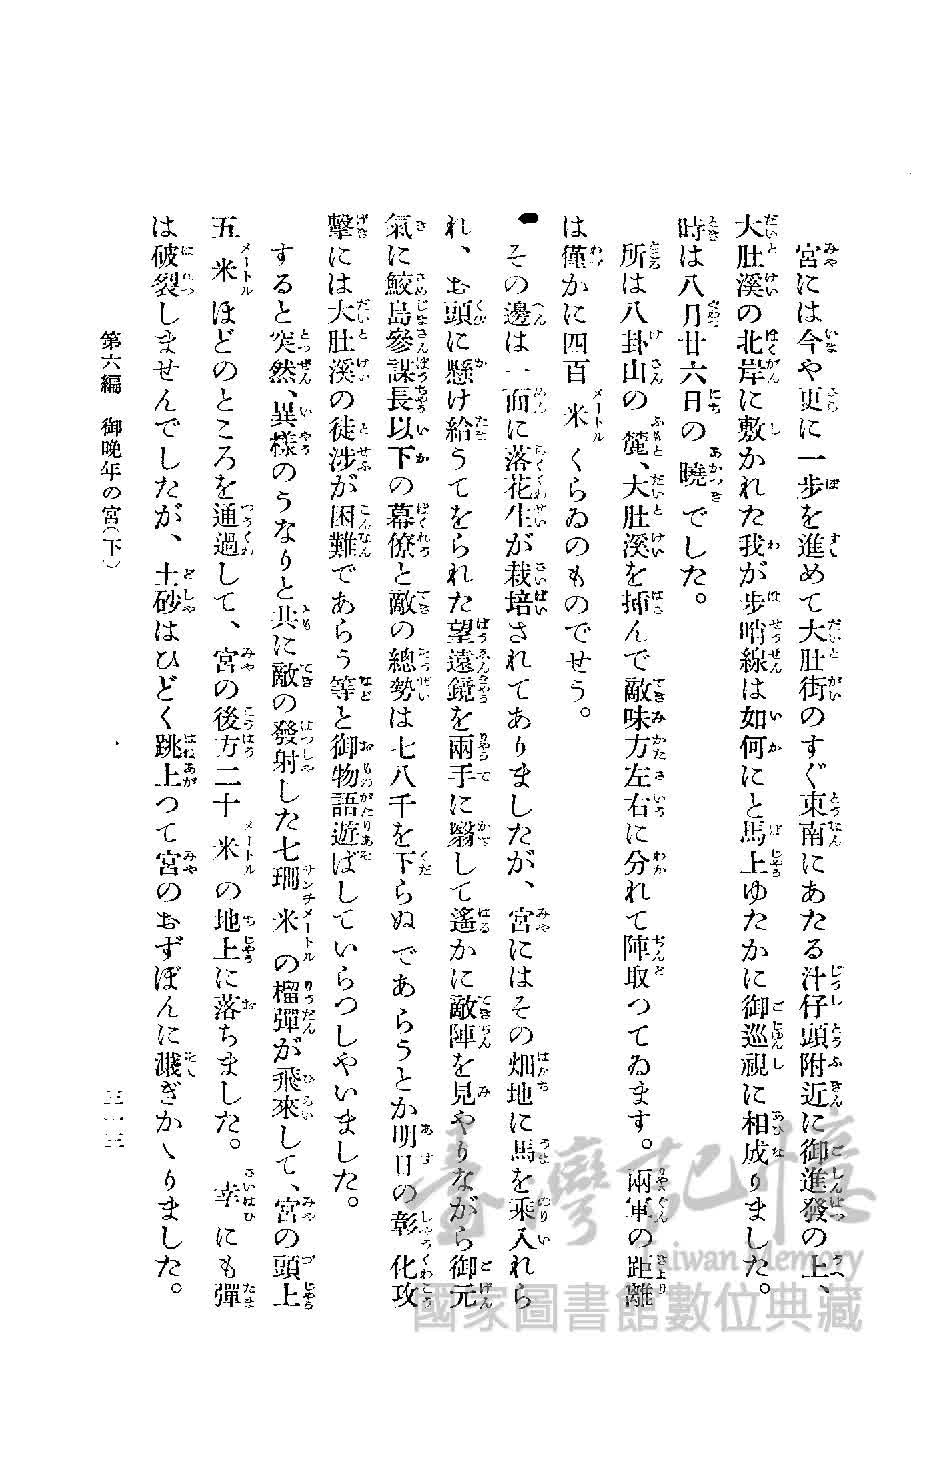 宮には今や更に一步を進めて大肚街のすぐ東南にあたる汁仔頭附近に御進發の上、
大肚溪の北岸に敷かれた我が步哨線は如何にと馬上ゆたかに御巡視に相成りました。
時は八月廿六日の曉でした。
所は八卦山の麓、大肚溪を揷んで敵味方左右に分れて陣取つてゐます。兩軍の距離
は僅かに四百米くらゐのものでせう。
その邊は一面に落花生が栽培されてありましたが、宮にはその畑地に馬を乘入れら
れ、お頸に懸け給うてをられた望遠鏡を兩手に翳して遙かに敵陣を見やりながら御元
氣に鮫島參謀長以下の幕僚と敵の總勢は七八千を下らぬであらうとか明日の彰化攻
擊には大肚溪の徒涉が困難であらう等と御物語遊ばしていらつしやいました。
すると突然、異樣のうなりと共に敵の發射した七珊米の榴彈が飛來して、宮の頭上
五米ほどのところを通過して、宮の後方二十米の地上に落ちました。幸にも彈
は破裂しませんでしたが、土砂はひどく跳上つて宮のおずぼんに濺ぎかゝりました。
第六編 御晩年の宮(下)
三一三
臺灣記憶
Taiwan Memory
國家圖書館數位典藏